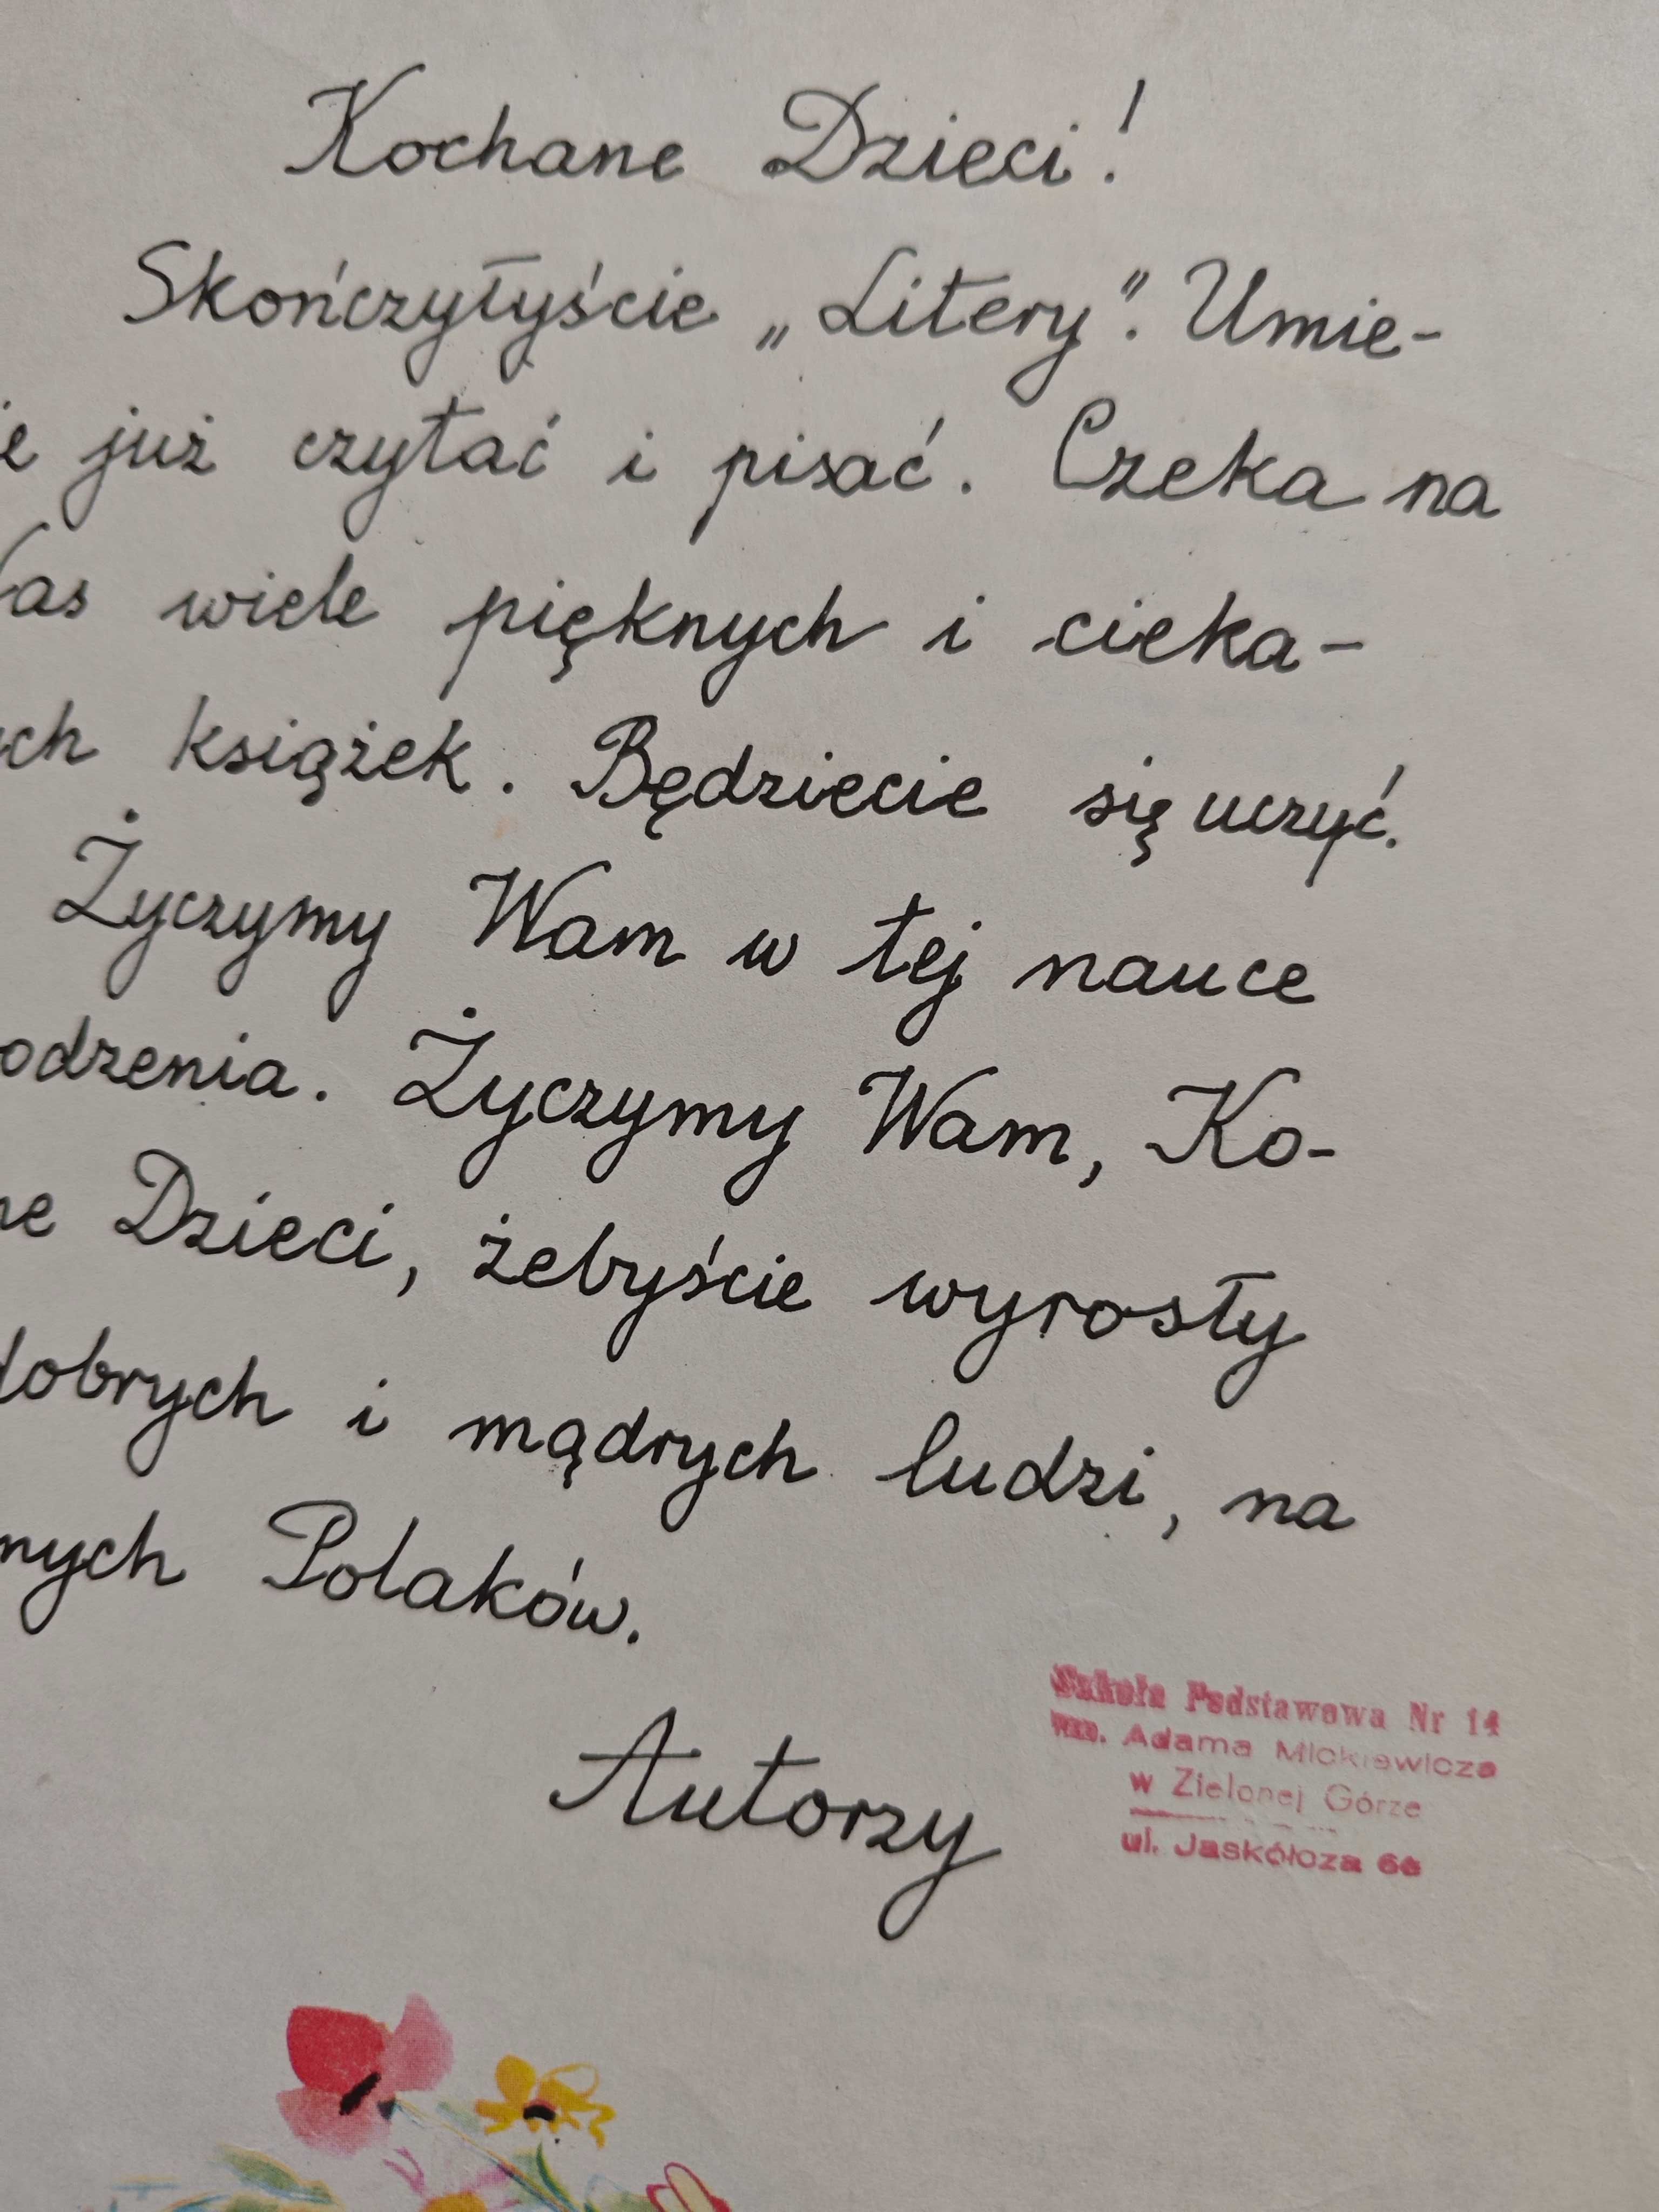 Kochane Dzieci!
Skończyłyście „Litery". Umie-
ie już czytać i pisać. Czeka na
as wiele pięknych i cieka-
ych książek. Będziecie się uczyć.
Życzymy Wam w tej nauce
odzenia. Życzymy Wam, Ko-
ne Dzieci, żebyście wyrosły
dobrych i mądrych ludzi, na
nych Polaków.
Autorzy
Szkoła Podstawowa Nr 14
im. Adama Mickiewicza
w Zielonej Górze
ul. Jaskółcza 66